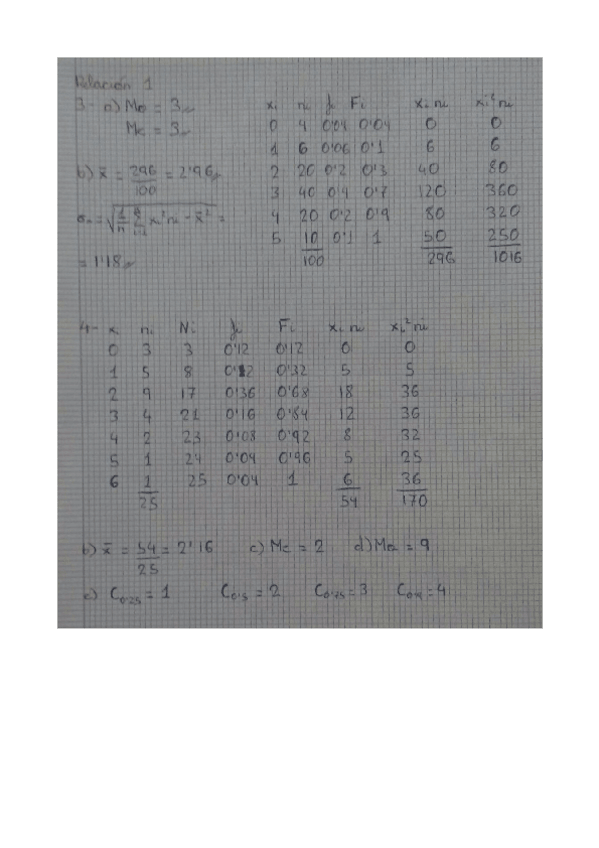 Relación 1
3- a) Mo = 3
Me = 3
b) x̄ = 296/100 = 2'96
σn = √(1/n Σ xi²ni - x̄²) =
= 1'18
xi ni fi Fi xi ni xi² ni
0 4 0'04 0'04 0 0
1 6 0'06 0'1 6 6
2 20 0'2 0'3 40 80
3 40 0'4 0'7 120 360
4 20 0'2 0'9 80 320
5 10 0'1 1 50 250
100 296 1016
4- xi ni Ni fi Fi xi ni xi² ni
0 3 3 0'12 0'12 0 0
1 5 8 0'32 5 5
2 9 17 0'36 0'68 18 36
3 4 21 0'16 0'84 12 36
4 2 23 0'08 0'92 8 32
5 1 24 0'04 0'96 5 25
6 1 25 0'04 1 6 36
25 54 170
b) x̄ = 54/25 = 2'16 c) Me = 2 d) Mo = 9
e) C0'25 = 1 C0'5 = 2 C0'75 = 3 C0'9 = 4